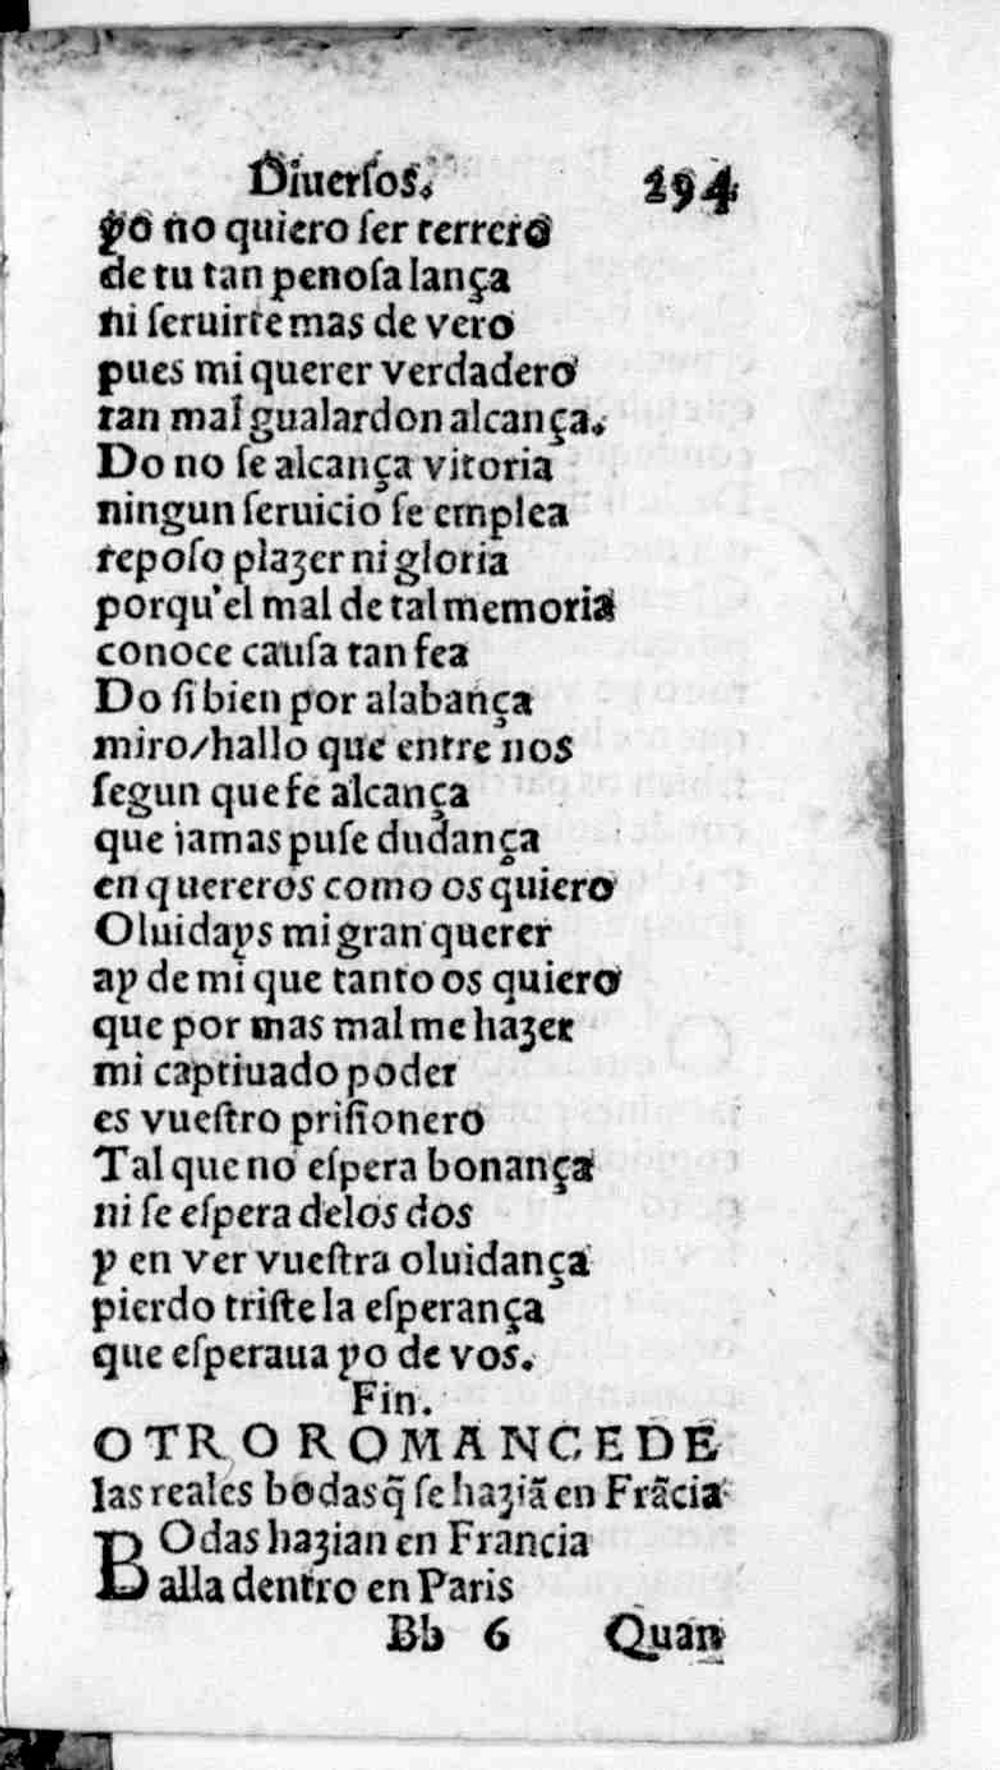 Diuerſos. 294
yo no quiero ſer terrero
de tu tan penoſa lança
ni ſeruirte mas de vero
pues mi querer verdadero
tan mal gualardon alcança.
Do no ſe alcança vitoria
ningun ſeruicio ſe emplea
repoſo plazer ni gloria
porqu'el mal de tal memoria
conoce cauſa tan fea
Do ſi bien por alabança
miro/hallo que entre nos
ſegun que fe alcança
que iamas puſe dudança
en quereros como os quiero
Oluidays mi gran querer
ay de mi que tanto os quiero
que por mas mal me hazer
mi captiuado poder
es vueſtro priſionero
Tal que no eſpera bonança
ni ſe eſpera delos dos
y en ver vueſtra oluidança
pierdo triſte la eſperança
que eſperaua yo de vos.
Fin.
OTRO ROMANCE DE
las reales bodas q̃ ſe haziã en Frãcia
BOdas hazian en Francia
alla dentro en Paris
Bb 6 Quan